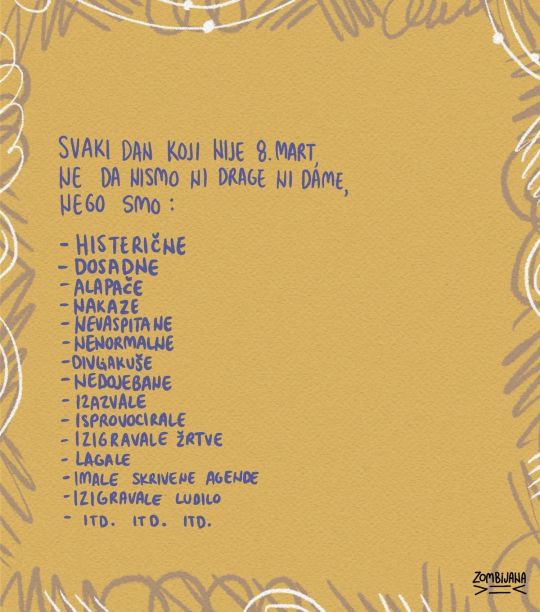 SVAKI DAN KOJI NIJE 8. MART,
NE DA NISMO NI DRAGE NI DAME,
NEGO SMO :
- HISTERIČNE
- DOSADNE
- ALAPAČE
- NAKAZE
- NEVASPITANE
- NENORMALNE
- DIVLJAKUŠE
- NEDOJEBANE
- IZAZVALE
- ISPROVOCIRALE
- IZIGRAVALE ŽRTVE
- LAGALE
- IMALE SKRIVENE AGENDE
- IZIGRAVALE LUDILO
- ITD. ITD. ITD.
ZOMBIJANA